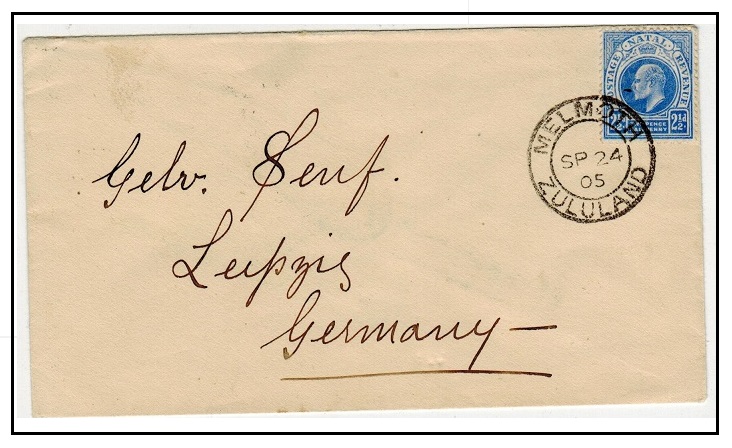 POSTAGE NATAL REVENUE
2½d
MELMOTH
SP 24
05
ZULULAND
Gebr. Senf.
Leipzig
Germany —